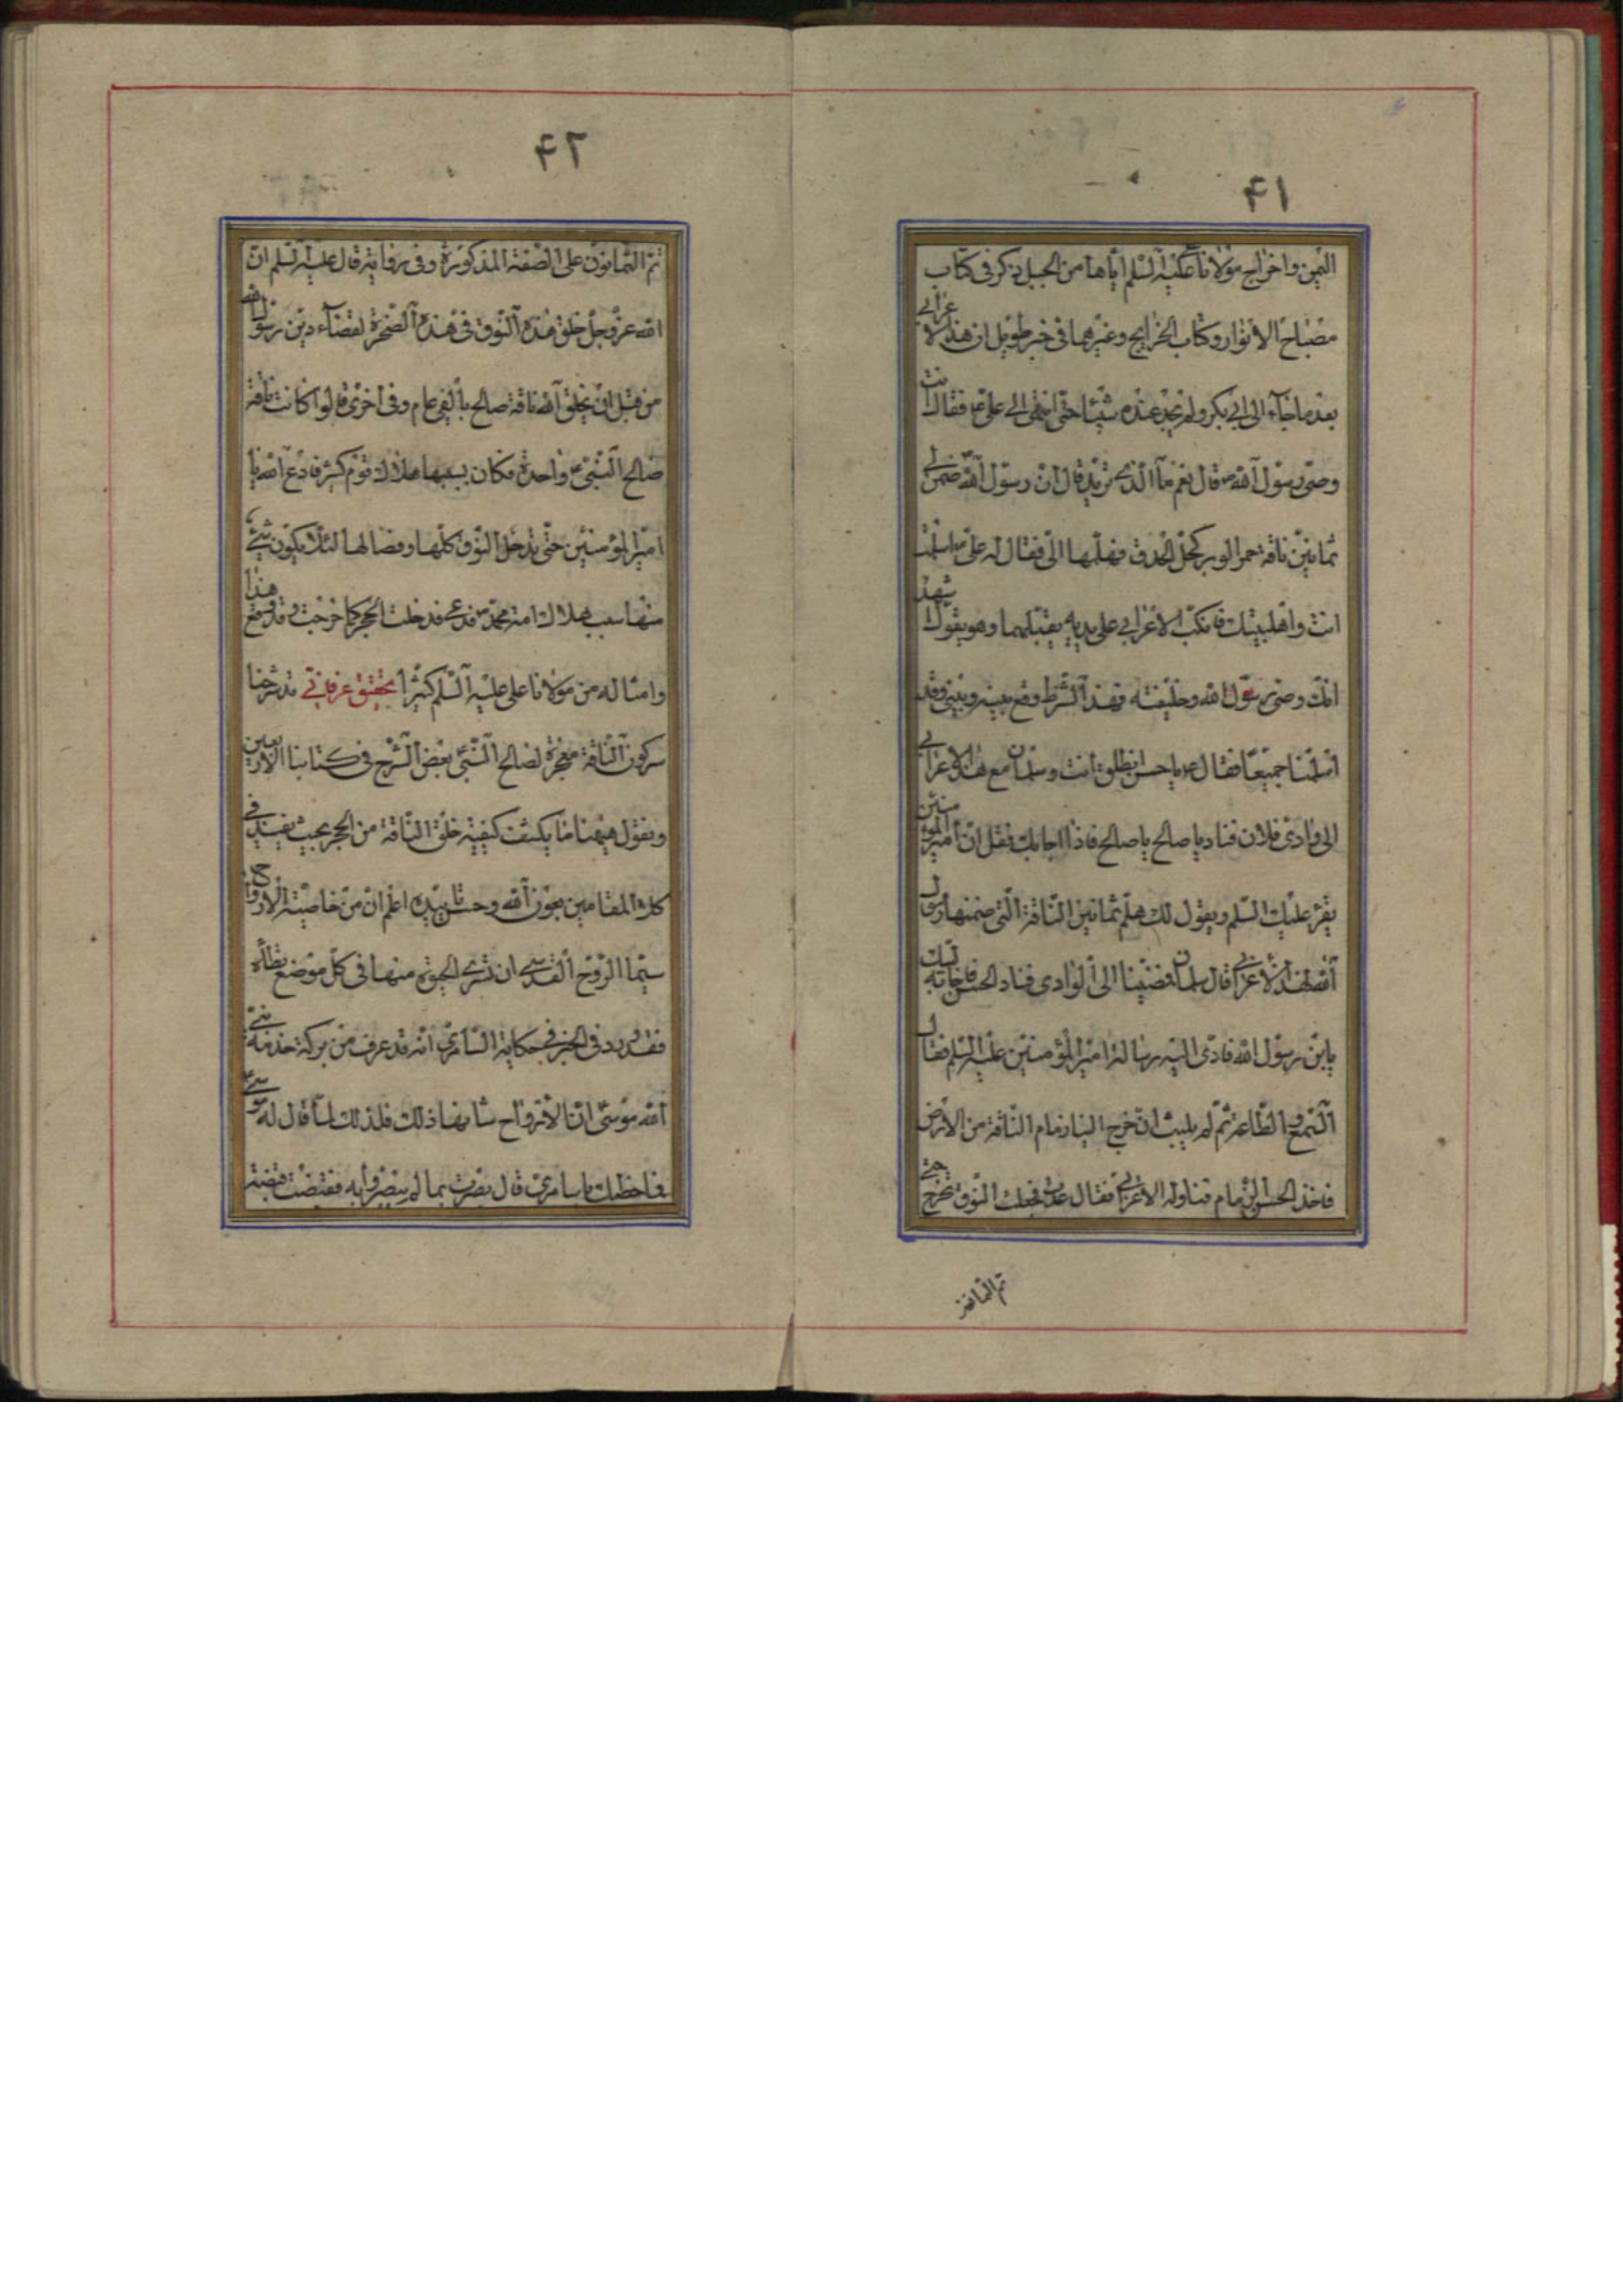 ۴۱
اليمن واخراج مولانا عليه السلم اياها من الجبل ذكر في كتاب
مصباح الانوار وكتاب الخرايج وغيرهما في خبر طويل ان هذا الاعرابي
بعد ما جاء الى ابي بكر ولم يجد عنده شيئا حتى انتهى الى علي ع فقال انت
وصي رسول الله ص قال نعم ما الذي تريد قال ان رسول الله ضمن لي
ثمانين ناقة حمر الوبر كحل الحدق فهلمها الي فقال له علي ع اسلمت
انت واهلبيتك فانكب الاعرابي على يديه يقبلهما وهو يقول اشهد
انك وصي رسول الله وخليفته فهذا الشرط وقع بينه وبيني وقد
اسلمنا جميعا فقال ع يا حسن انطلق انت وسلمان مع هذا الاعرابي
الى وادي فلان فناد يا صالح يا صالح فاذا اجابك فقل ان امير المؤمنين
يقرء عليك السلم ويقول لك هلم ثمانين الناقة التي ضمنها رسول
الله لهذا الاعرابي قال سلمان فمضينا الى الوادي فناد الحسن فاجابه لبيك
يابن رسول الله فادى اليه رسالة امير المؤمنين عليه السلم فقال
السمع والطاعة ثم لم يلبث ان خرج الينا زمام الناقة من الارض
فاخذ الحسن الزمام فناوله الاعرابي فقال عد فجعلت النوق تخرج حتى
تم الثمانون
۴۲
تم الثمانون على الصفة المذكورة وفي رواية قال عليه السلم ان
الله عز وجل خلق هذه النوق في هذه الصخرة لقضاء دين رسول الله
من قبل ان يخلق الله ناقة صالح بألفي عام وفي اخرى قالوا كانت ناقة
صالح النبي ع واحدة فكان بسببها هلاك قوم كثير فادع الله يا
امير المؤمنين حتى يدخل النوق كلها وفصالها لئلا يكون شيء
منها سبب هلاك امة محمد ص فدعى فدخلت الحجر كما خرجت وقد وقع هذا
وامثاله من مولانا علي عليه السلم كثيرا تحقيق عرفاني قد شرحنا
سر كون الناقة معجزة لصالح النبي بعض الشرح في كتابنا الاربعين
ونقول هيهنا ما يكشف كيفية خلق الناقة من الحجر بحيث يفيد في
كلا المقامين بعون الله وحسن تاييده اعلم ان من خاصية الارواح
سيما الروح القدسي ان تسري الحيوة منها في كل موضع يطأه
فقد ورد في الخبر في حكاية السامري انه قد عرف من بركة خدمة نبي
الله موسى ان الارواح شانها ذلك فلذلك لما قال له موسى ع
فما خطبك يا سامري قال بصرت بما لم يبصروا به فقبضت قبضة